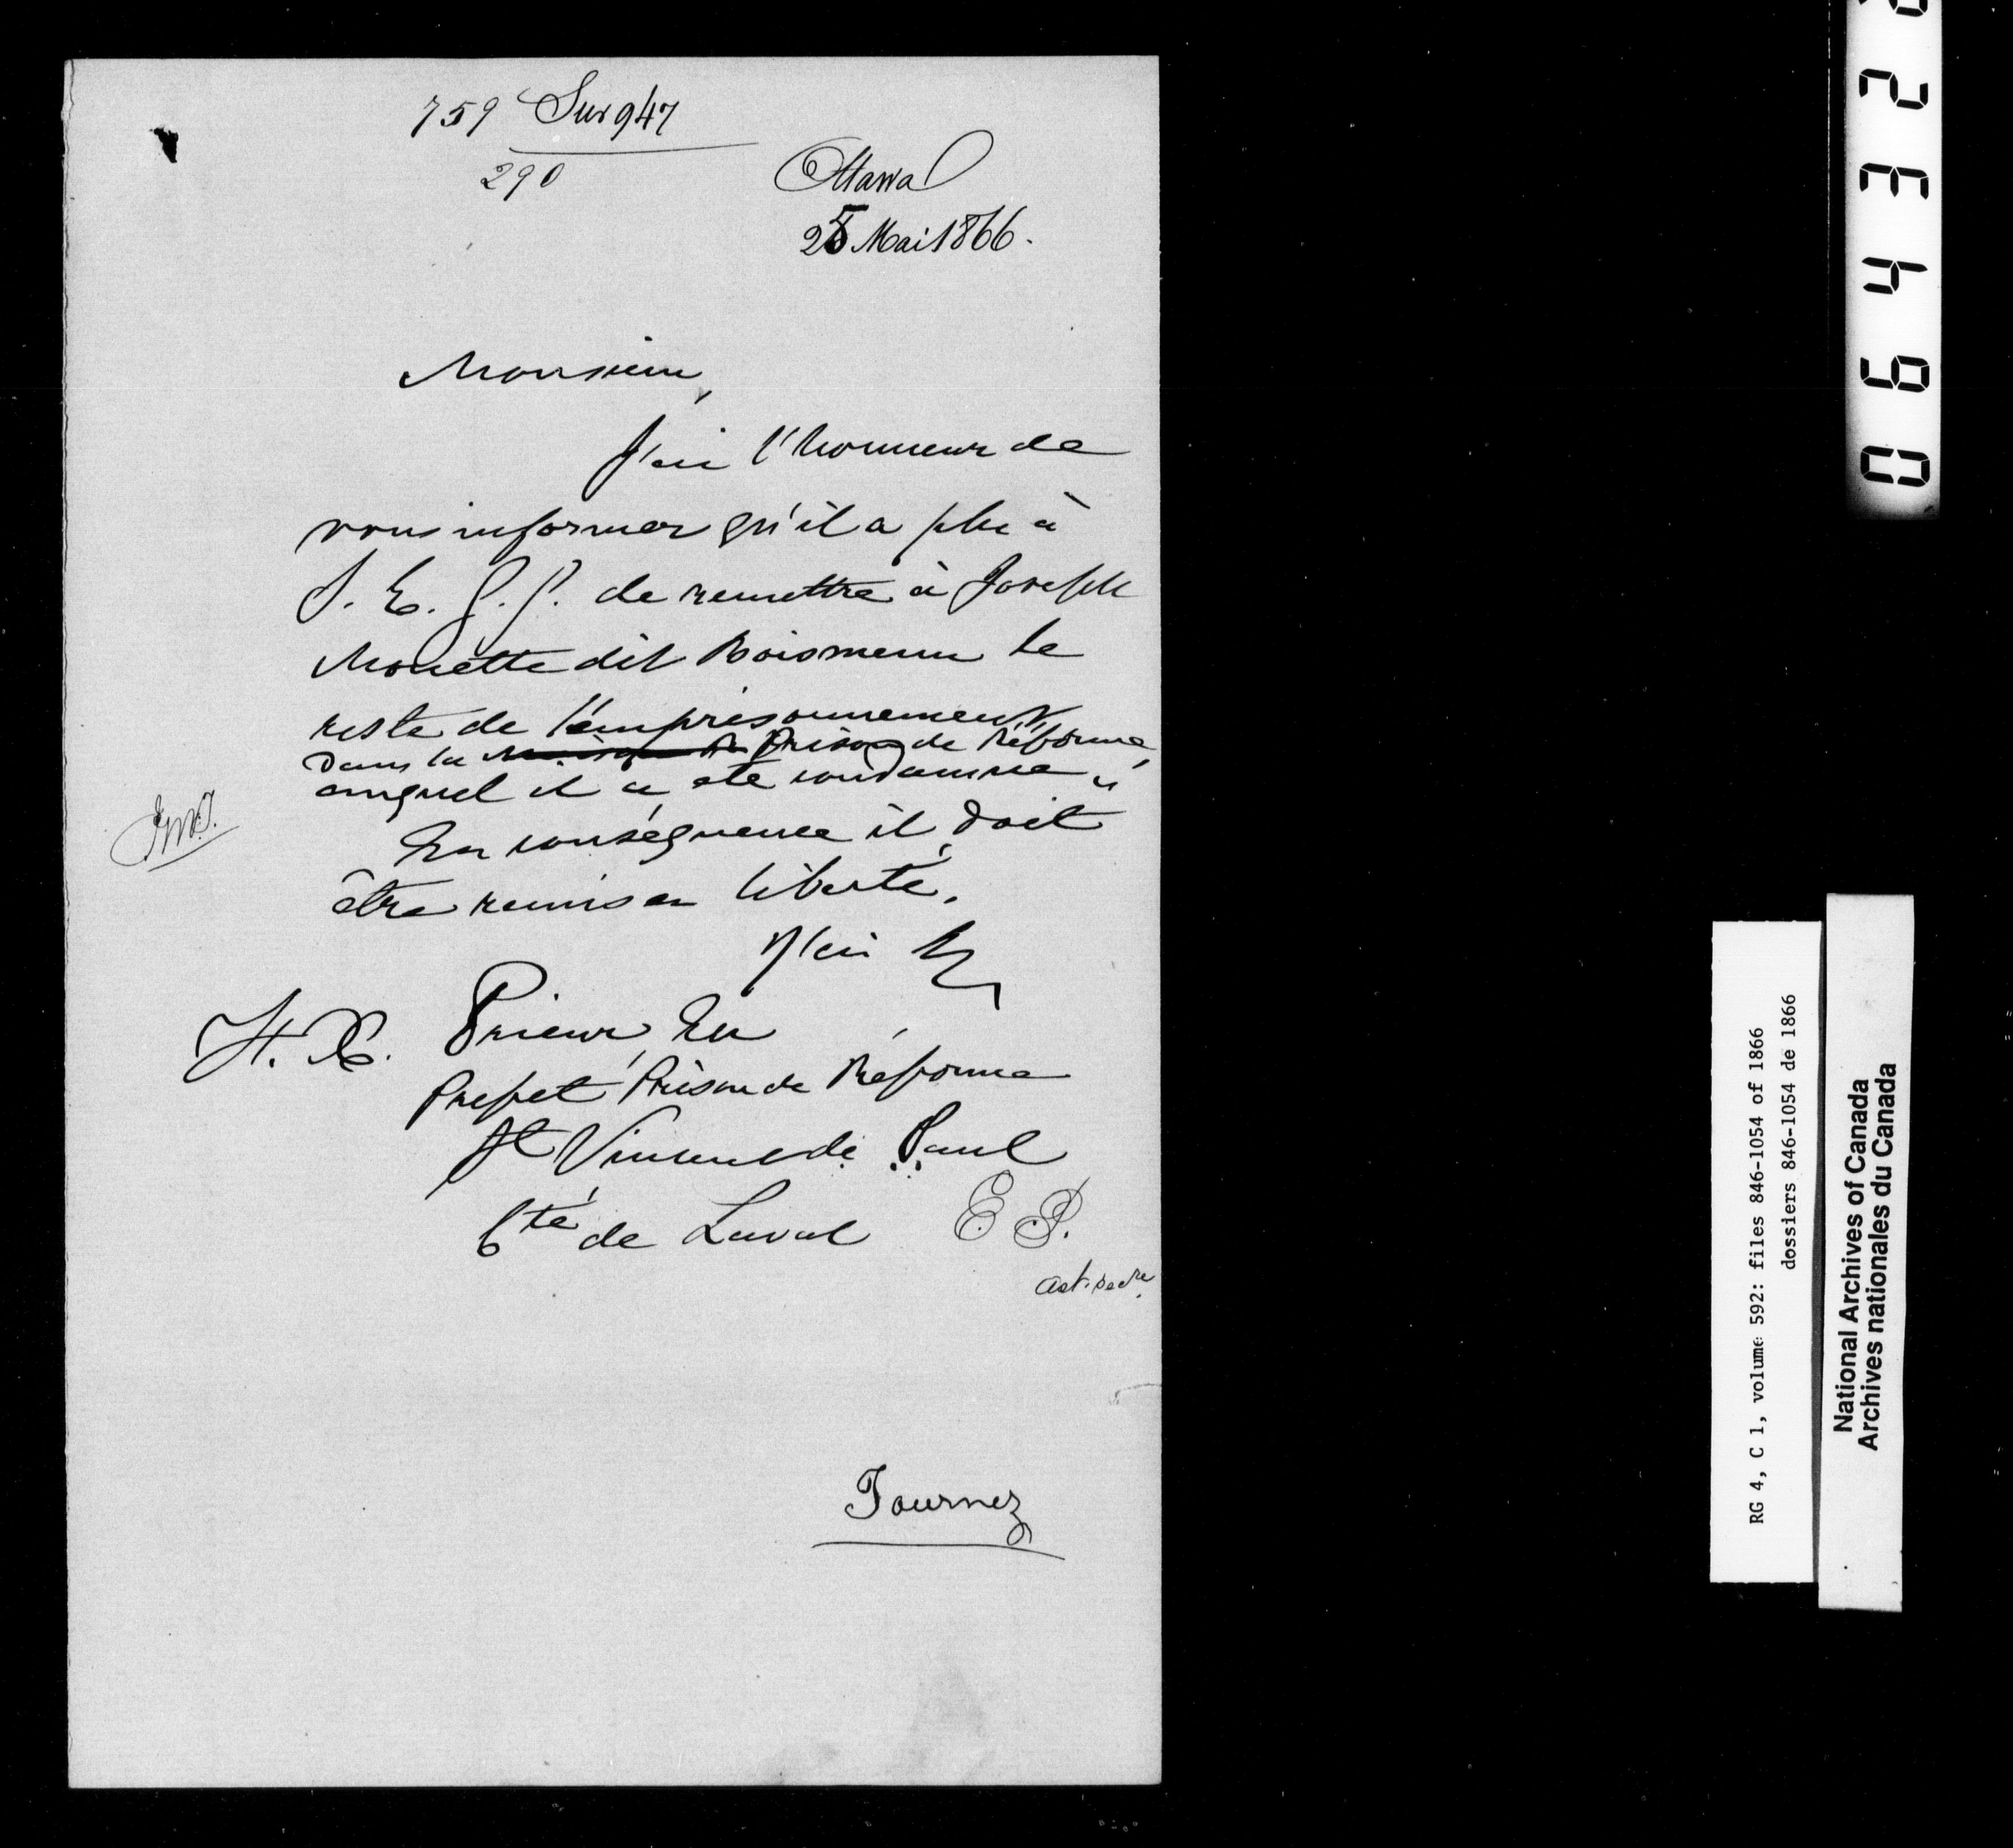 759 Sur 947
290
Ottawa
25 Mai 1866.
Monsieur,
J'ai l'honneur de
vous informer qu'il a plu à
S. E. G. G. de remettre à Joseph
Monette dit Boismenu le
reste de l'emprisonnement
dans la Prison de Réforme
auquel il a été condamné
En conséquence il doit
être remis en liberté.
J'ai &
F. X. Prieur Er
Préfet Prison de Réforme
St Vincent de Paul
Cté de Laval
E P.
Ast. secre.
Tournez
064322
RG 4, C 1, volume 592: files 846-1054 of 1866
dossiers 846-1054 de 1866
National Archives of Canada
Archives nationales du Canada